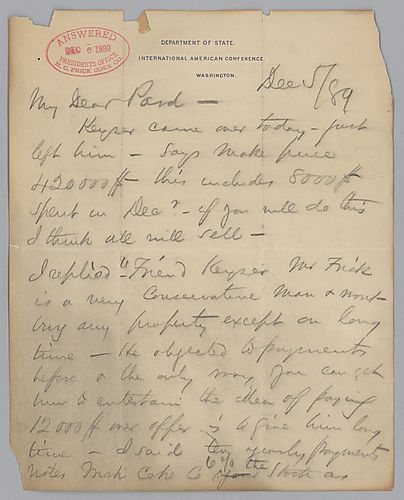 ANSWERED
DEC 6 1889
PRESIDENTS OFFICE
H. C. FRICK COKE CO.
DEPARTMENT OF STATE.
INTERNATIONAL AMERICAN CONFERENCE.
WASHINGTON.
Dec 5/89
My Dear Pard —
Keyser came over today — just
left him — Says make price
420000$ — this includes 8000$
spent in Dec? — if you will do this
I think all will sell —
I replied "Friend Keyser Mr Frick
is a very Conservative Man & wont
buy any property except on long
time — He objected to payments
before & the only way you can get
him to entertain the idea of paying
12000$ over offer is to give him long
time — I said ten yearly payments
Notes Frick Coke Co 6% the Stock as